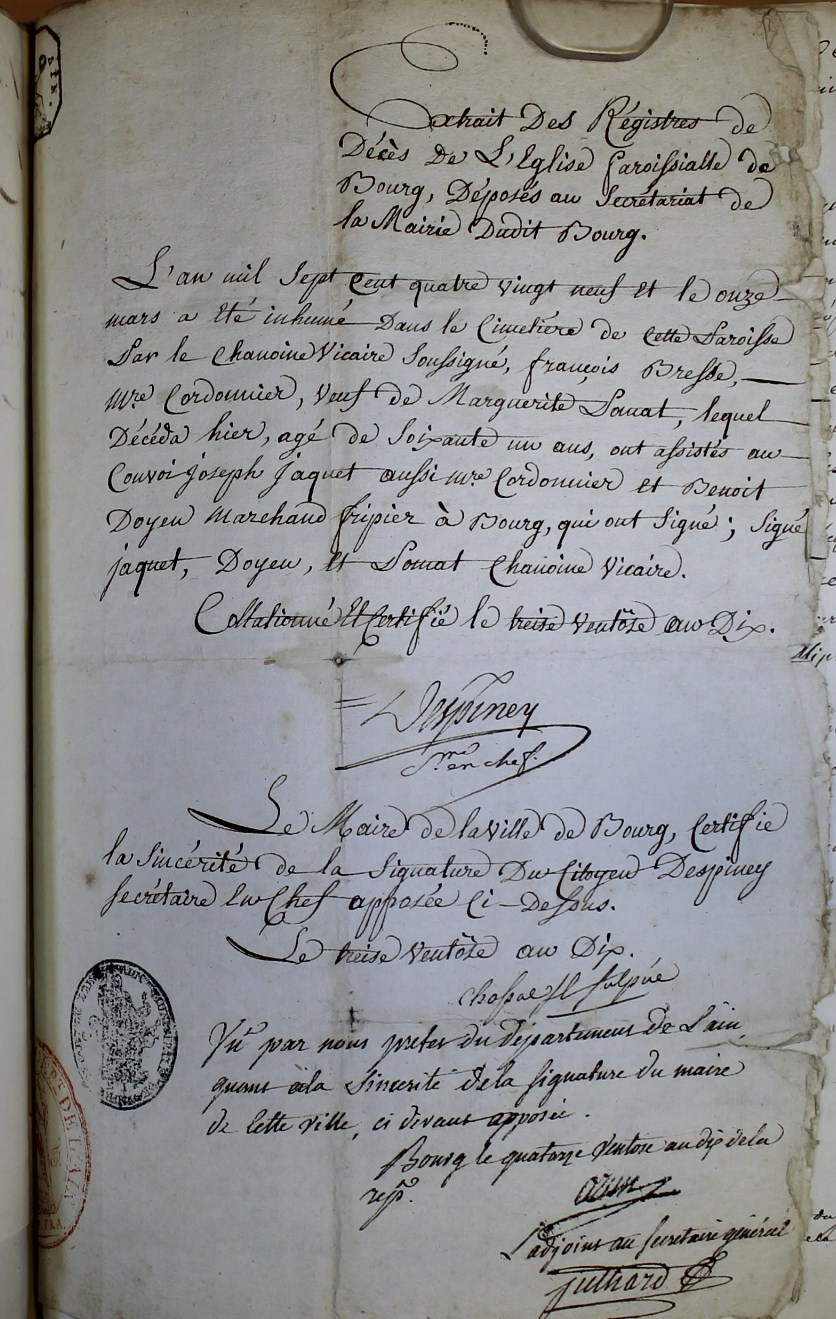 Extrait Des Régistres de
Décès De L'Eglise Paroissialle de
Bourg, Déposés au Secrétariat de
la Mairie Dudit Bourg.
L'an mil Sept Cent quatre vingt neuf et le onze
mars a été inhumé Dans le Cimetière de Cette Paroisse
Par le Chanoine Vicaire Soussigné, françois Bresse,
Mre Cordonnier, Veuf de Marguerite Lomat, lequel
Décéda hier, agé de Soixante un ans, ont assistés au
Convoi Joseph Jaquet aussi Mre Cordonnier et Benoit
Doyen Marchand fripier à Bourg, qui ont Signé; Signé
jaquet, Doyen, et Lomat Chanoine Vicaire.
Collationné Et Certifié le treise Ventôse an Dix.
Despiney
S.re en chef.
Le Maire de la Ville de Bourg, Certifie
la Sincérité de la Signature Du Citoyen Despiney
Secrétaire En Chef apposée Ci-Dessus.
Le treise Ventôse an Dix.
Vu par nous prefet du Département de L'ain,
quant à la Sincerité de la Signature du maire
de Cette Ville, ci devant apposée.
Bourg le quatorze Ventose an dix de la
rep.
L'adjoint au Secretaire général